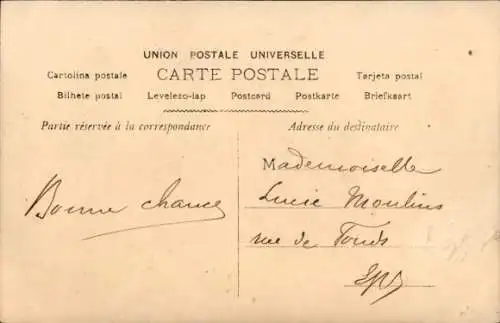 UNION POSTALE UNIVERSELLE
CARTE POSTALE
Cartolina postale
Tarjeta postal
Bilhete postal Levelezo-lap Postcard Postkarte Briefkaart
Partie réservée à la correspondance
Adresse du destinataire
Bonne chance
Mademoiselle
Lucie Moulins
rue de Fonds